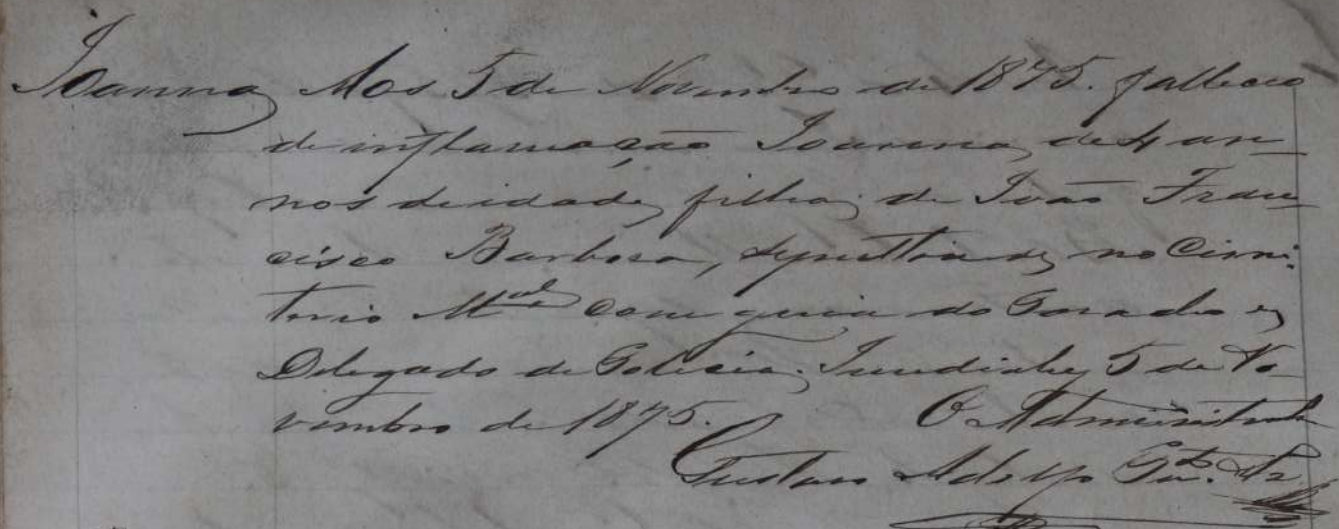 Joanna Aos 5 de Novembro de 1875. falleceo
de inflamação Joanna, de 4 an-
nos de idade, filha, de João Fran-
cisco Barbosa, sepultou se, no Cimi-
terio M.al com guia do
Delegado de Policia. Jundiahy 5 de No-
vembro de 1875. O Administrador
Gustavo Adolpo